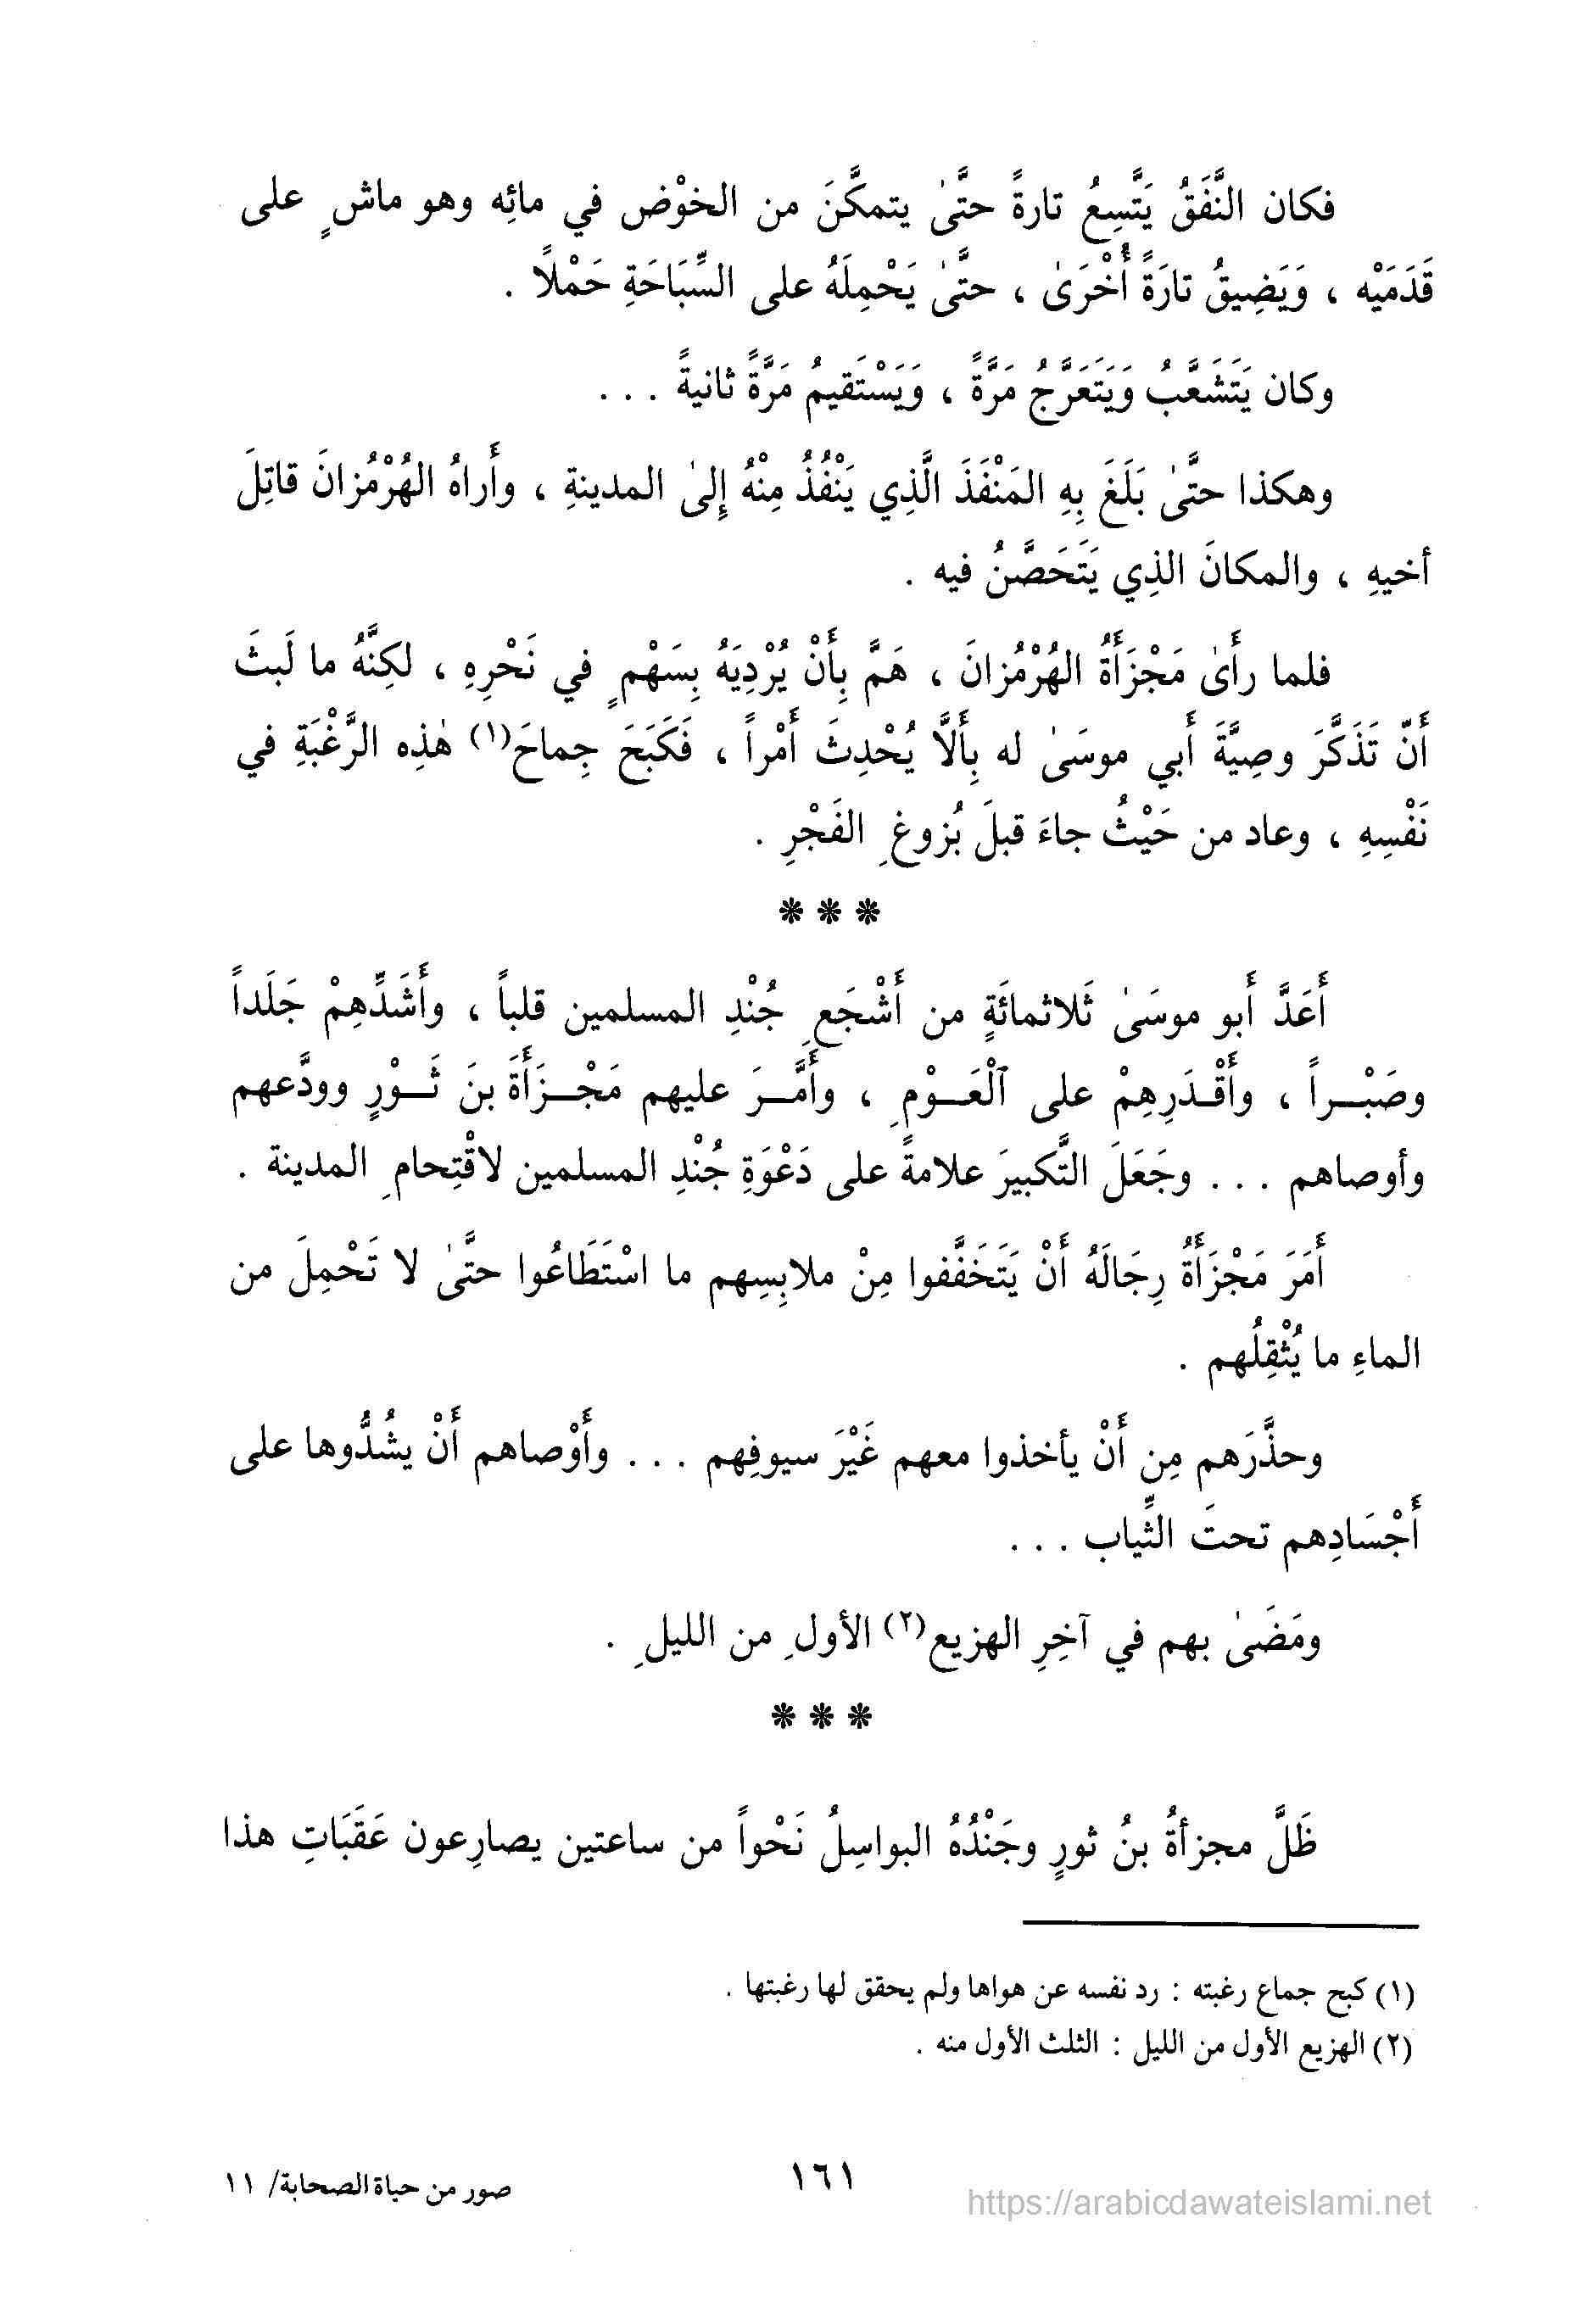 فكان النَّفَقُ يَتَّسِعُ تارةً حتَّىٰ يتمكَّنَ من الخوْض في مائِه وهو ماشٍ على
قَدَمَيْه ، وَيَضِيقُ تارَةً أُخْرَىٰ ، حتَّىٰ يَحْمِلَهُ على السِّبَاحَةِ حَمْلاً .
وكان يَتَشَعَّبُ وَيَتَعَرَّجُ مَرَّةً ، وَيَسْتَقيمُ مَرَّةً ثانيةً . . .
وهكذا حتَّىٰ بَلَغَ بِهِ المَنْفَذَ الَّذِي يَنْفُذُ مِنْهُ إِلىٰ المدينةِ ، وأَراهُ الهُرْمُزانَ قاتِلَ
أخيهِ ، والمكانَ الذِي يَتَحَصَّنُ فيه .
فلما رأَىٰ مَجْزَأَةُ الهُرْمُزانَ ، هَمَّ بِأَنْ يُرْدِيَهُ بِسَهْمٍ في نَحْرِهِ ، لكِنَّهُ ما لَبثَ
أَنّ تَذَكَّرَ وصِيَّةَ أَبي موسَىٰ له بِأَلاَّ يُحْدِثَ أَمْراً ، فَكَبَحَ جِماحَ(١) هٰذِه الرَّغْبَةِ في
نَفْسِهِ ، وعاد من حَيْثُ جاءَ قبلَ بُزوغِ الفَجْرِ .
* * *
أَعَدَّ أَبو موسَىٰ ثَلاثمائَةٍ من أَشْجَعِ جُنْدِ المسلمين قلباً ، وأَشَدِّهِمْ جَلَداً
وصَبْـراً ، وأَقْـدَرِهِمْ على ٱلْعَـوْمِ ، وأَمَّـرَ عليهم مَجْـزَأَةَ بنَ ثَـوْرٍ وودَّعهم
وأوصاهم . . . وجَعَلَ التَّكبيرَ علامةً على دَعْوَةِ جُنْدِ المسلمين لاقْتِحامِ المدينة .
أَمَرَ مَجْزَأَةُ رِجَالَهُ أَنْ يَتَخَفَّفوا مِنْ ملابِسِهم ما اسْتَطَاعُوا حتَّىٰ لا تَحْمِلَ من
الماءِ ما يُثْقِلُهم .
وحذَّرَهم مِن أَنْ يأخذوا معهم غَيْرَ سيوفِهم . . . وأَوْصاهم أَنْ يشُدُّوها على
أَجْسَادِهم تحتَ الثِّياب . . .
ومَضَىٰ بهم في آخِرِ الهزيع(٢) الأولِ من الليلِ .
* * *
ظَلَّ مجزأةُ بنُ ثورٍ وجَنْدُهُ البواسِلُ نَحْواً من ساعتين يصارِعون عَقَبَاتِ هذا
(١) كبح جماع رغبته : رد نفسه عن هواها ولم يحقق لها رغبتها .
(٢) الهزيع الأول من الليل : الثلث الأول منه .
١٦١
صور من حياة الصحابة/ ١١
https://arabicdawateislami.net